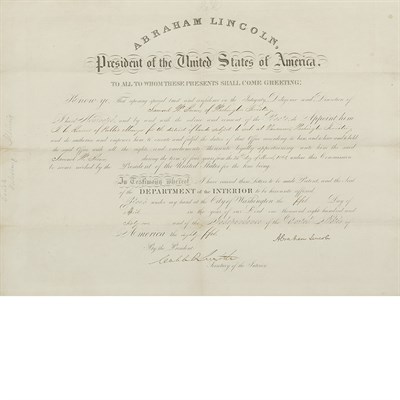 ABRAHAM LINCOLN,
President of the United States of America.
TO ALL TO WHOM THESE PRESENTS SHALL COME GREETING;
Know ye, That reposing special trust and confidence in the Integrity, Diligence and Discretion of
and by and with the advice and consent of the Senate, I do Appoint him
of Public Moneys for the district of lands subject to sale at Washington Territory
and do authorize and empower him to execute and fulfil the duties of that Office according to law; and to have and to hold
the said Office with all the rights and emoluments thereunto legally appertaining unto him the said
during the term of four years from the
President of the United States for the time being.
In Testimony Whereof, I have caused these Letters to be made Patent, and the Seal
of the DEPARTMENT of the INTERIOR to be hereunto affixed.
Given under my hand at the City of Washington the fifth Day of
in the year of our Lord one thousand eight hundred and
sixty one and of the Independence of the United States of
America the eighty fifth
Abraham Lincoln
By the President:
Caleb B. Smith
Secretary of the Interior.